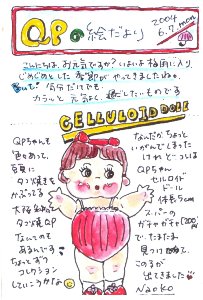 QPの絵だより
2004
6.7.mon
こんにちは、お元気ですか?いよいよ梅雨に入り
じめじめとした季節がやってきましたね。
気分だけでも
カラッと元気よく過ごしたいものです
CELLULOID DOLL
QPちゃんも
色々あって、
豆
タコ焼きを
かぶってる
大阪
タコ焼QP
なんてのも
あるんですョ
ちょっとずつ
コレクション
していこうかな
なんだかちょっと
いがんでしまった
けれどこっちは
QPちゃん
セルロイド
ドール
体長5cm
スーパーの
ガチャガチャ(200円)
で、たまたま
見つけ
このチが
出てきました
Naoko